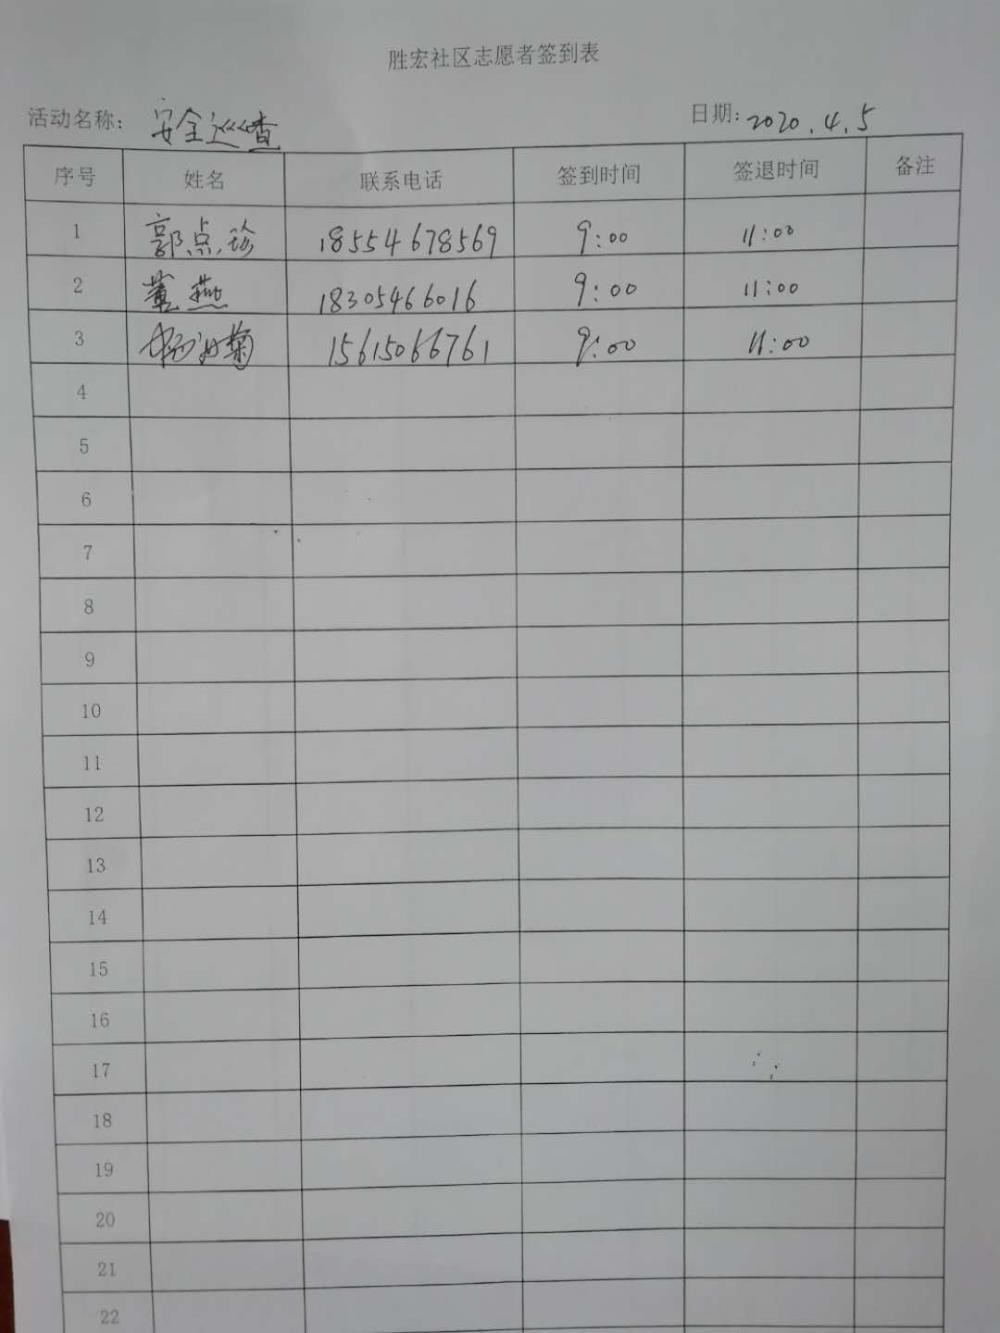 胜宏社区志愿者签到表
活动名称： 安全巡查 日期：2020.4.5
序号 姓名 联系电话 签到时间 签退时间 备注
1 郭点珍 18554678569 9:00 11:00
2 董燕 18305466016 9:00 11:00
3 15615066761 9:00 11:00
4
5
6
7
8
9
10
11
12
13
14
15
16
17
18
19
20
21
22